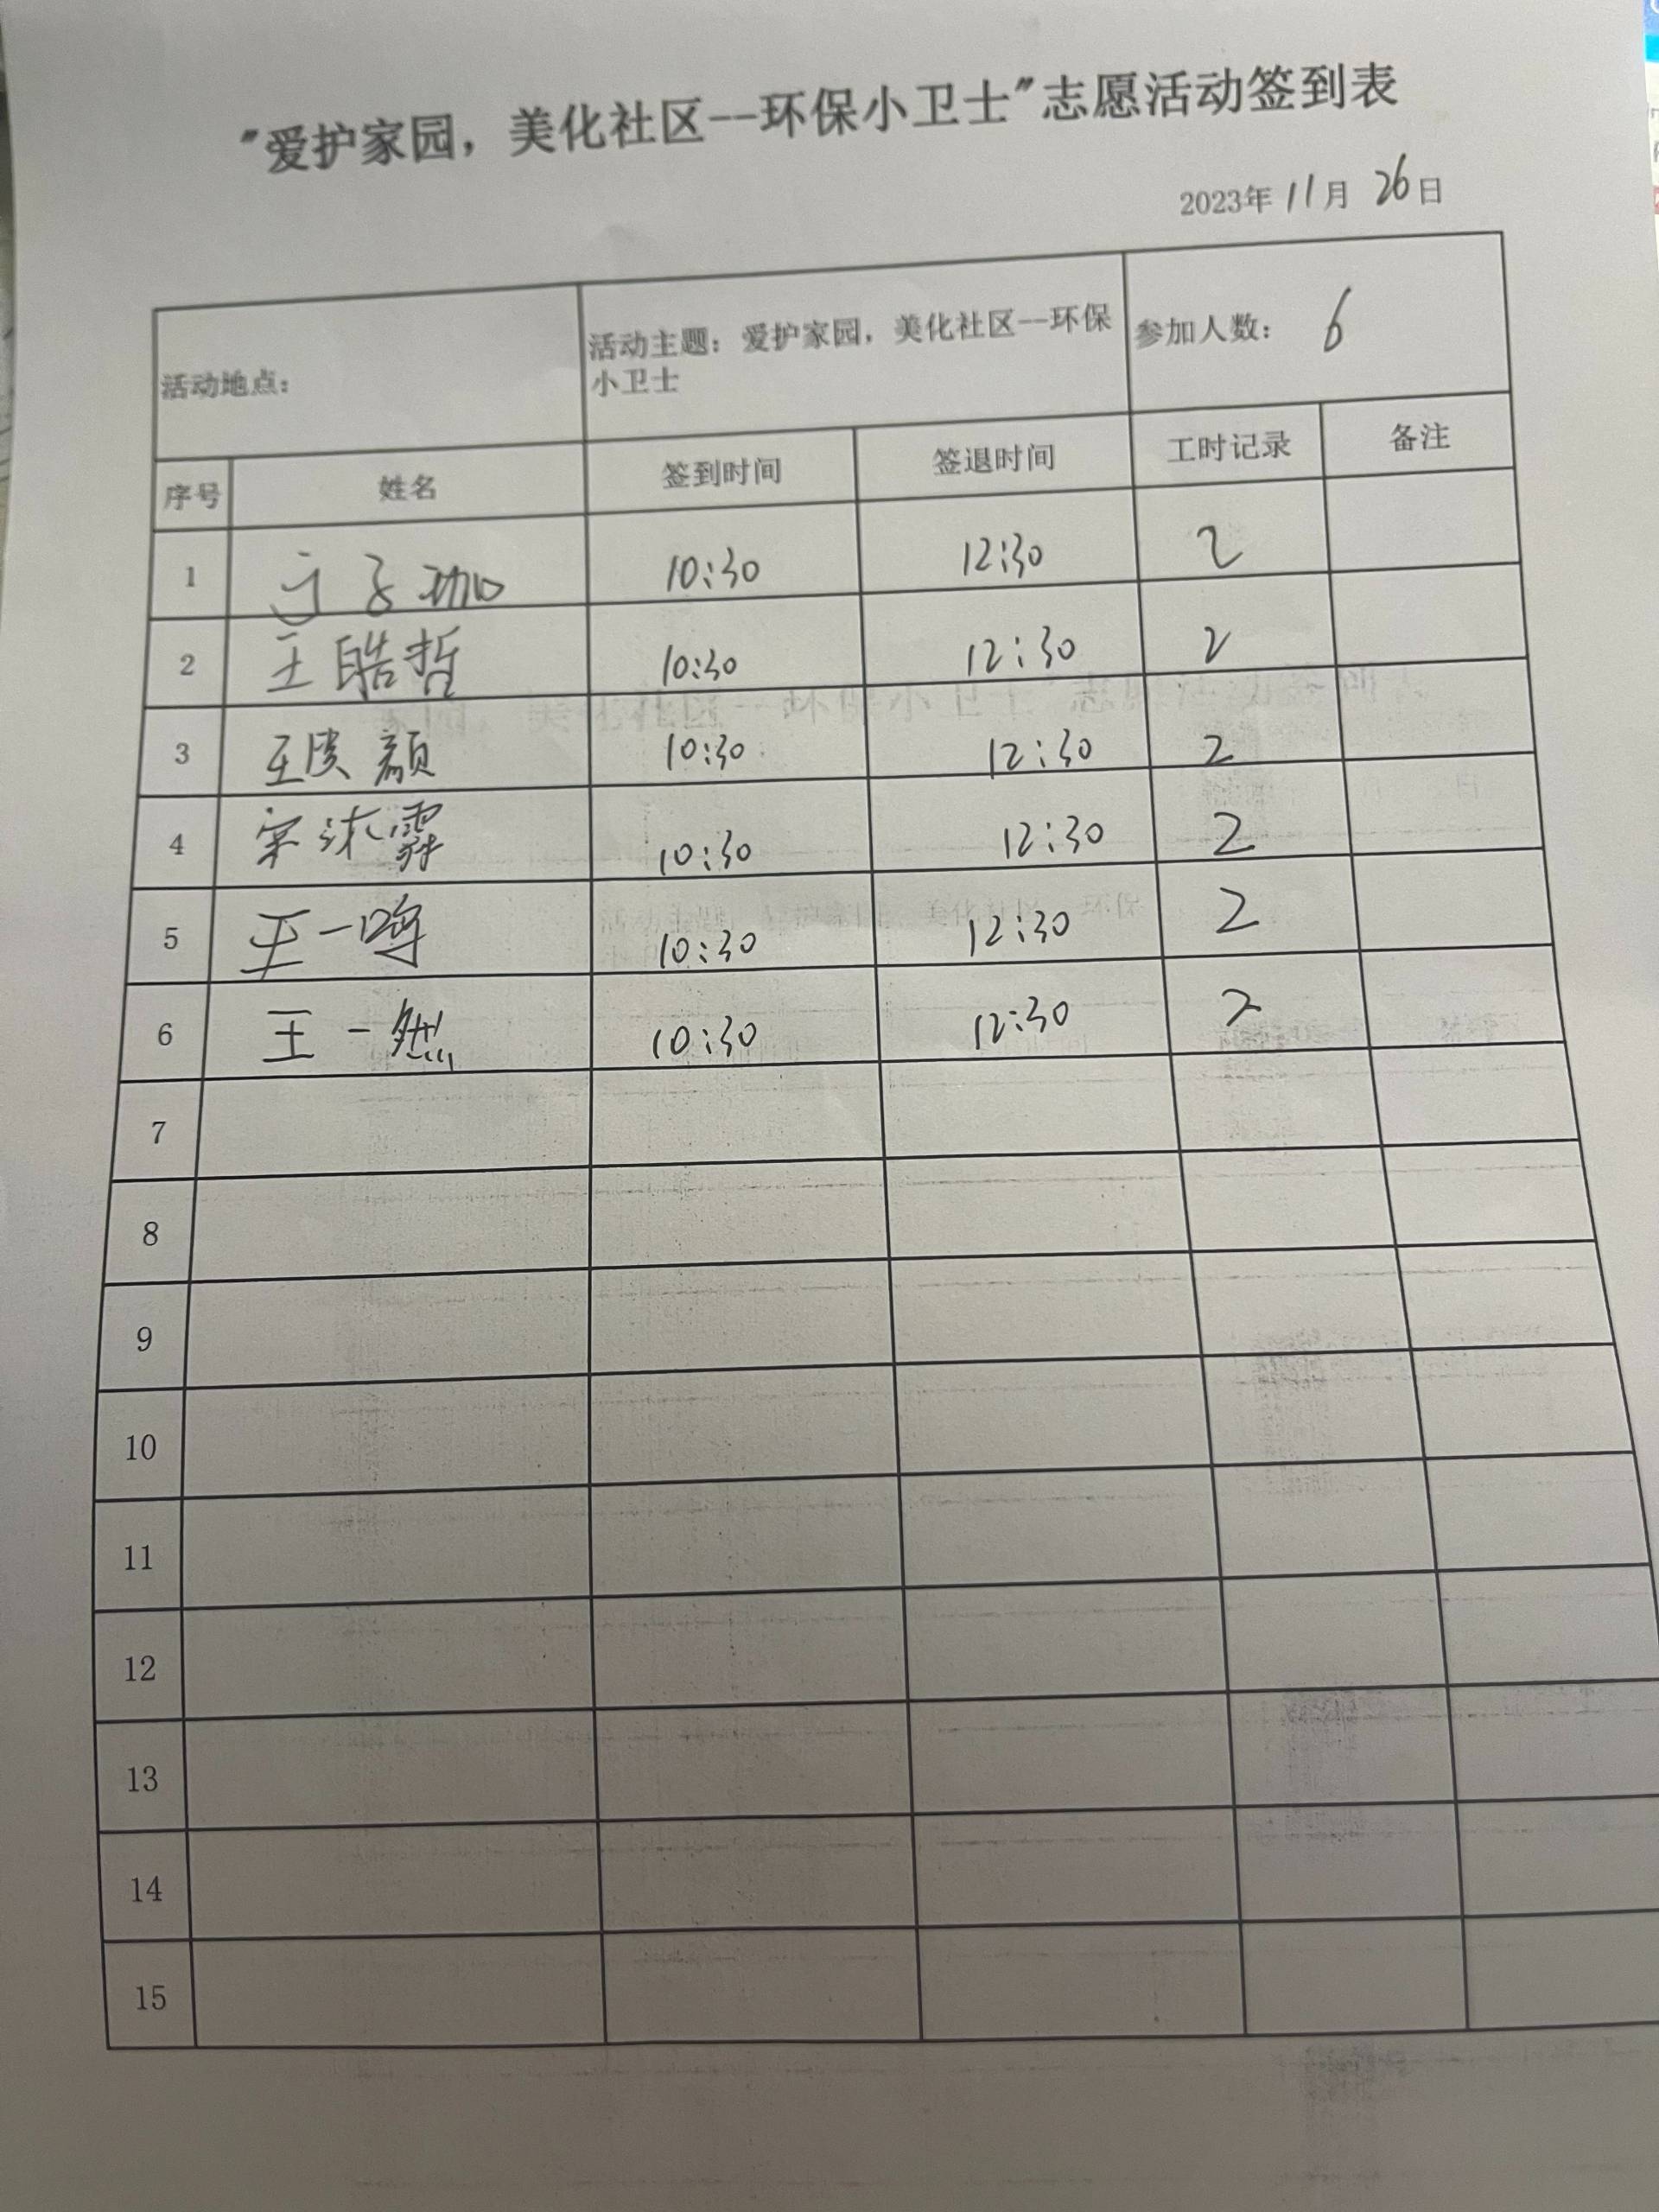 "爱护家园，美化社区--环保小卫士"志愿活动签到表
2023年 11月 26日
活动地点： 活动主题：爱护家园，美化社区--环保 参加人数： 6
小卫士
序号 姓名 签到时间 签退时间 工时记录 备注
1 10:30 12:30 2
2 王皓哲 10:30 12:30 2
3 10:30 12:30 2
4 宋沐霖 10:30 12:30 2
5 王一鸣 10:30 12:30 2
6 王一然 10:30 12:30 2
7
8
9
10
11
12
13
14
15